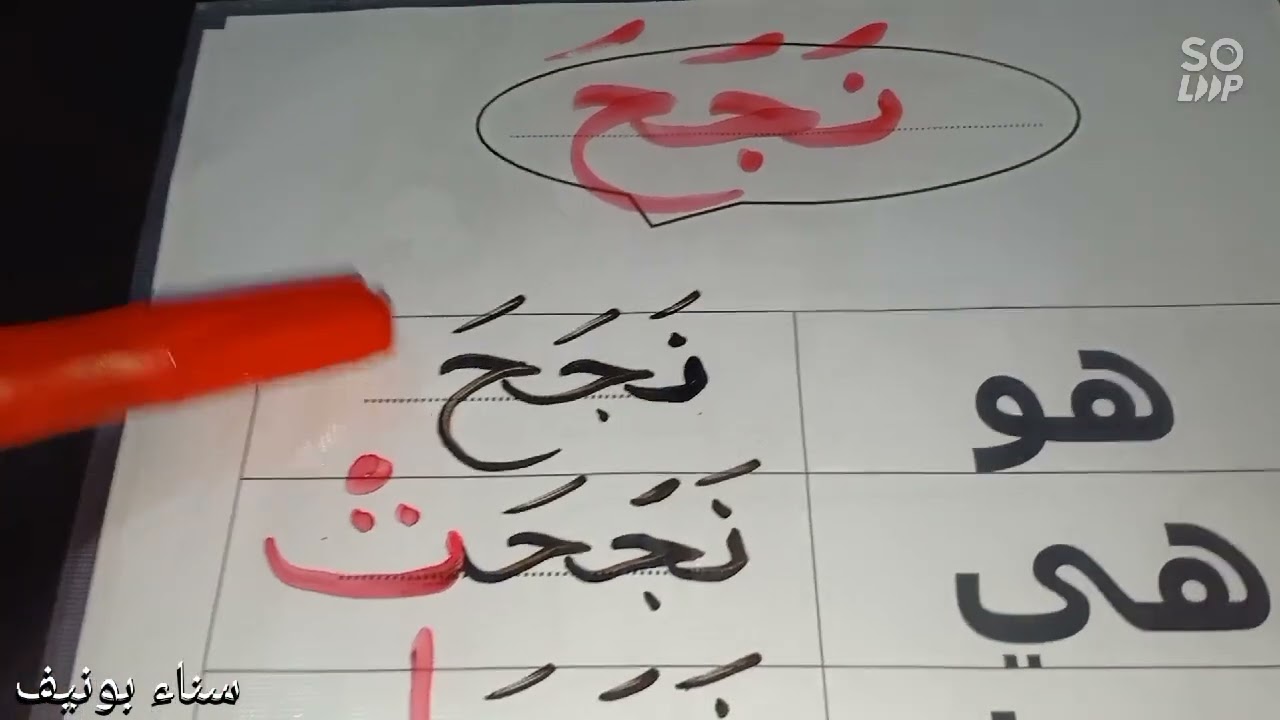 SO
LOOP
نَجَحَ
هو نَجَحَ
هي نَجَحَتْ
سناء بونيف